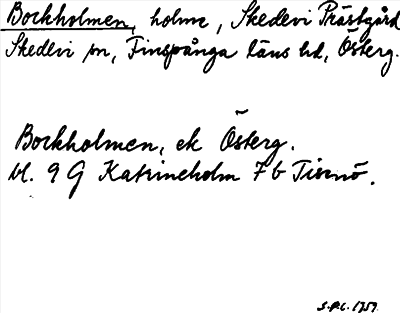 Bockholmen, holme, Skedevi Prästgård
Skedevi sn, Finspånga läns hd, Österg.
Bockholmen, ek Österg.
bl. 9 G Katrineholm 7 b Tisenö.
1757.